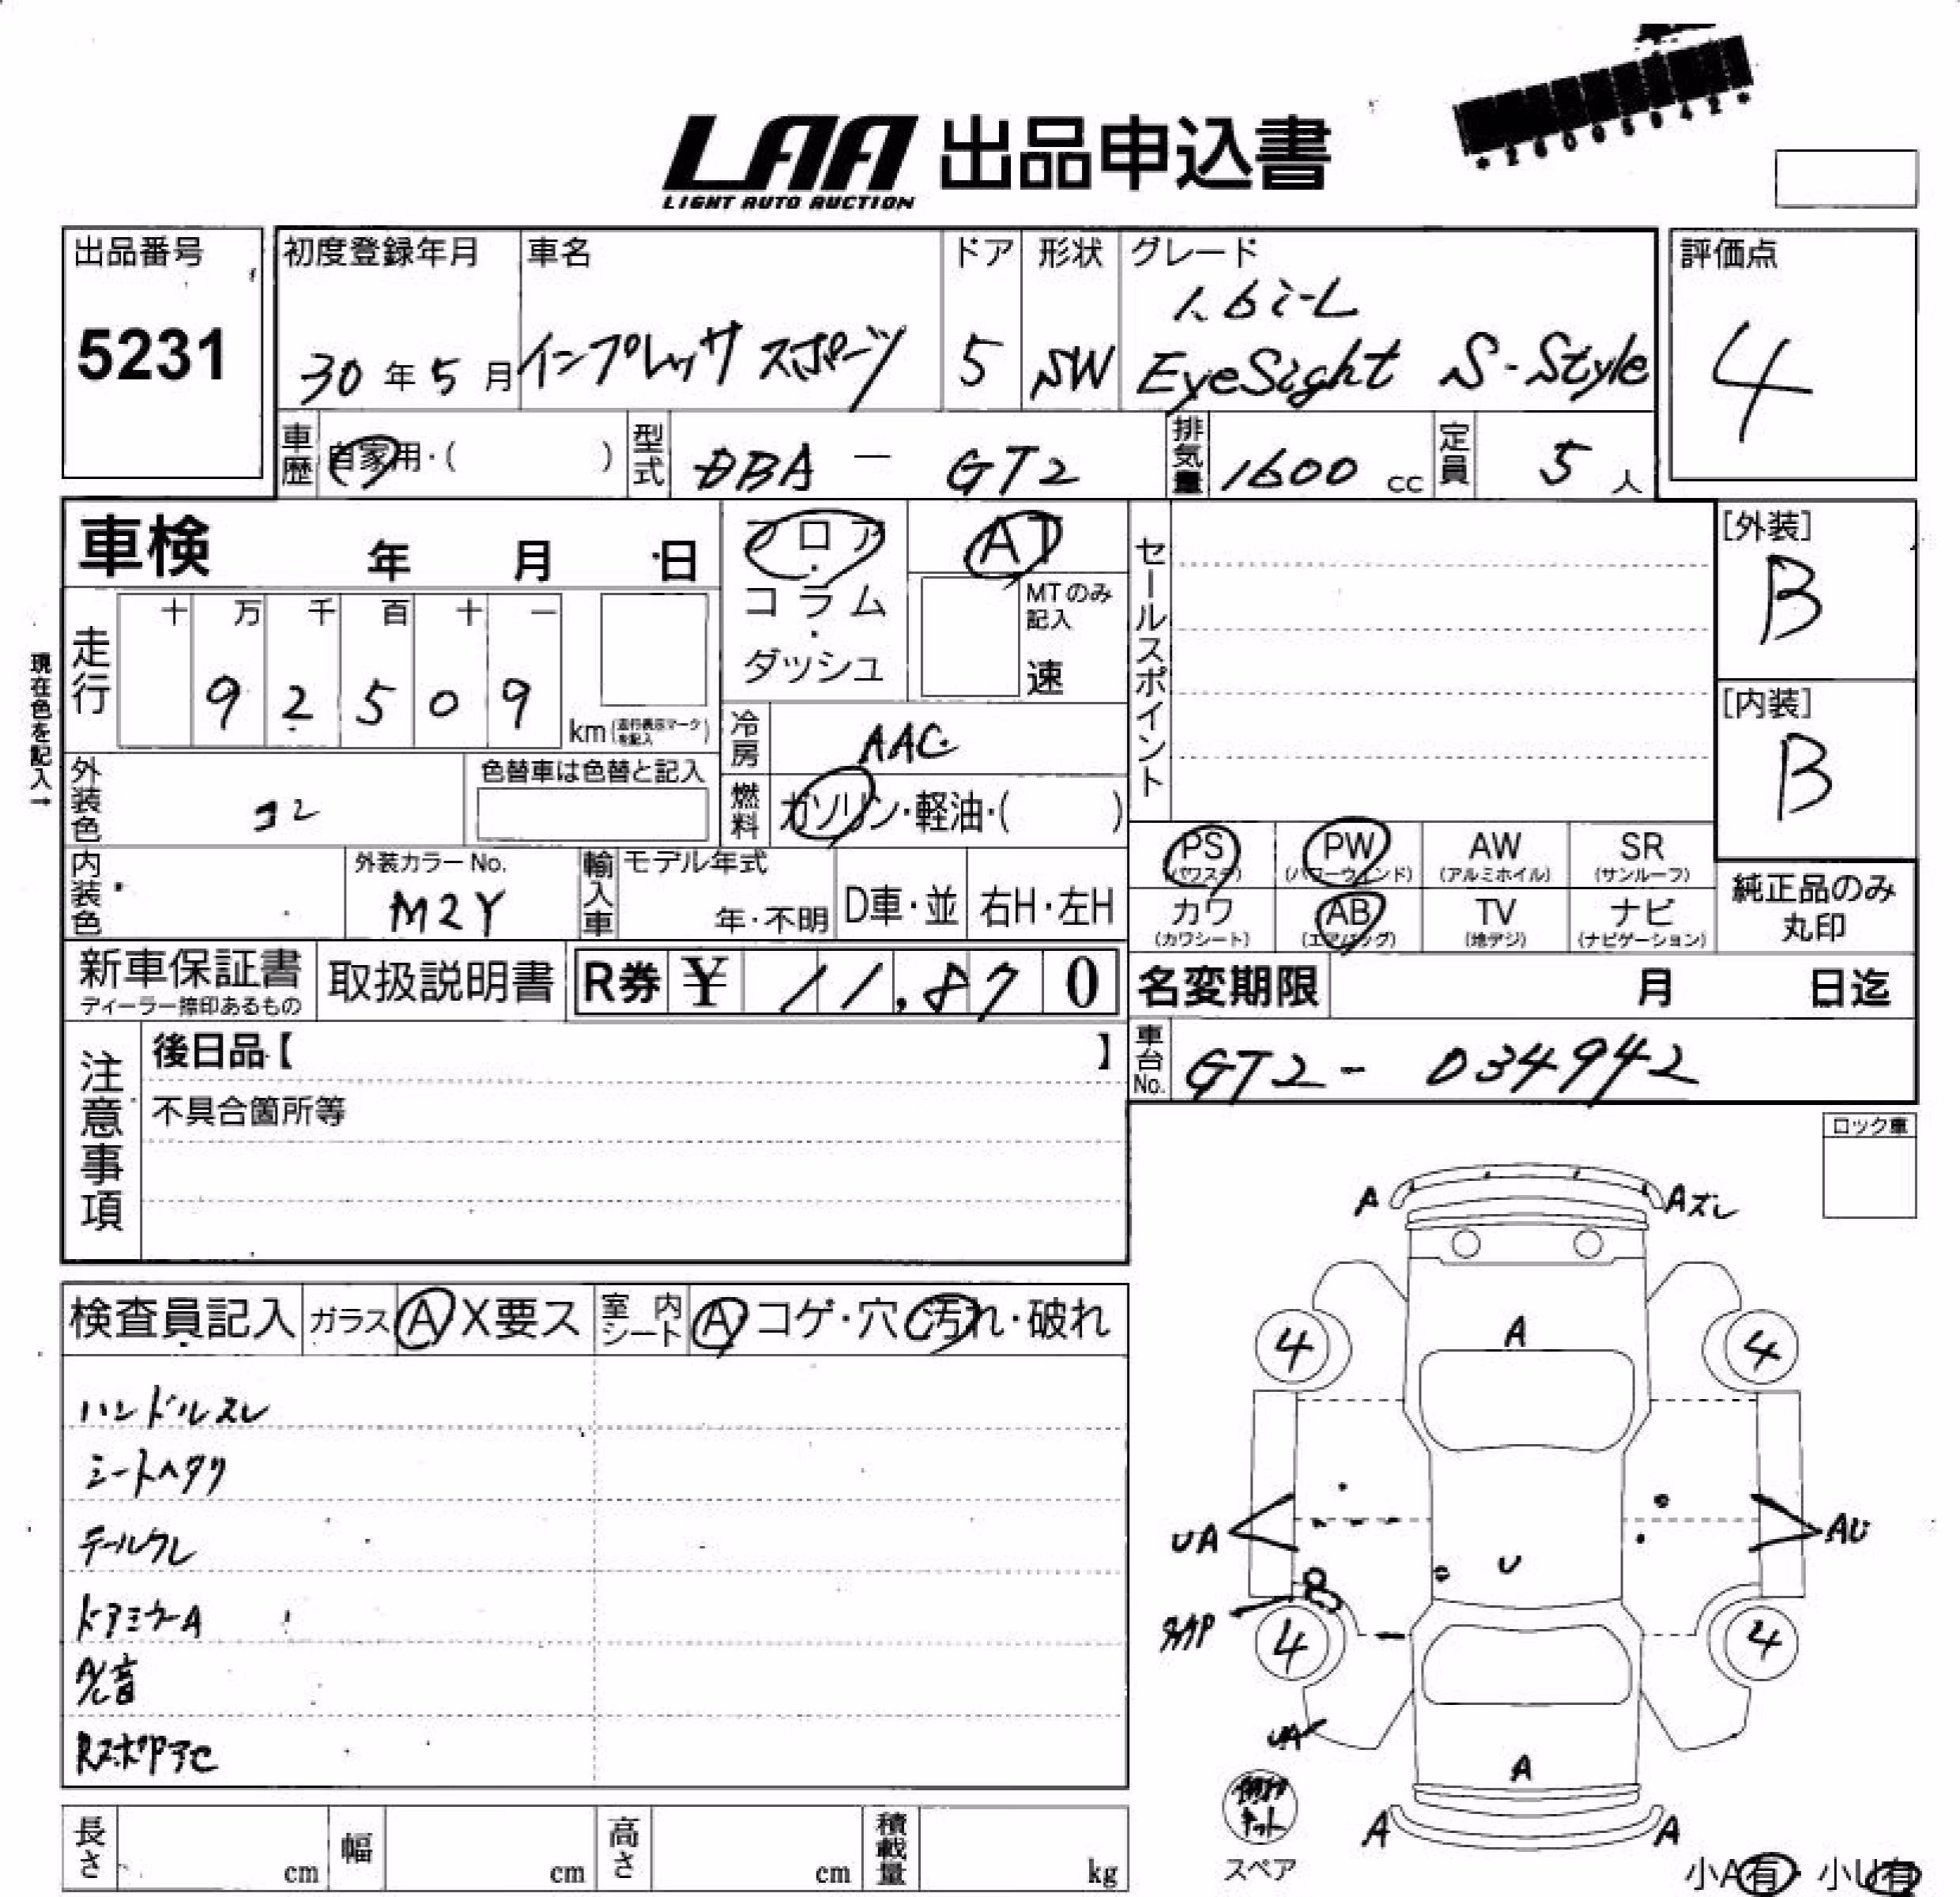 *26005942*
LAA 出品申込書
LIGHT AUTO AUCTION
出品番号
5231
初度登録年月
30年5月
車名
インプレッサ スポーツ
ドア
5
形状
SW
グレード
1.6i-L
EyeSight S-Style
評価点
4
車歴
自家用・( )
型式
DBA - GT2
排気量
1600 cc
定員
5 人
車検 年 月 日
フロア・コラム・ダッシュ
AT
MTのみ記入
速
セールスポイント
[外装]
B
[内装]
B
現在色を記入→
走行
十 万 千 百 十 一
9 2 5 0 9
km (走行表示マークを記入)
冷房
AAC
燃料
ガソリン・軽油・( )
外装色
コン
色替車は色替と記入
内装色
外装カラーNo.
M2Y
輸入車
モデル年式
年・不明
D車・並
右H・左H
PS (パワステ)
PW (パワーウィンド)
AW (アルミホイル)
SR (サンルーフ)
カワ (カワシート)
AB (エアバッグ)
TV (地デジ)
ナビ (ナビゲーション)
純正品のみ丸印
新車保証書
ディーラー捺印あるもの
取扱説明書
R券 ¥ 11,870
名変期限 月 日迄
車台No.
GT2- 034942
注意事項
後日品【 】
不具合箇所等
ロック車
検査員記入
ガラス A X要ス
室内シート A コゲ・穴・汚れ・破れ
ハンドルスレ
シートヘタリ
テールクレ
ドアミラーA
R スポドアC
A
Aズレ
4
4
A
UA
AU
U
4
4
UA
A
A
A
キット
スペア
小A有・小U有
長さ cm
幅 cm
高さ cm
積載量 kg